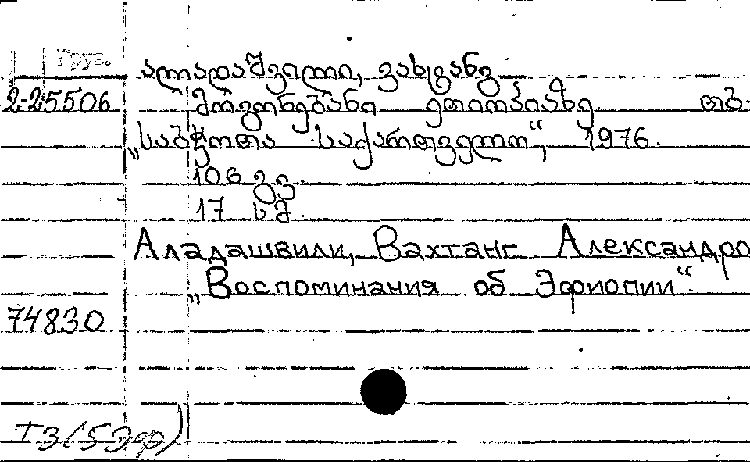 Груз.
ალადაშვილი, ვახტანგ
2-25506 მოგონებანი ეთიოპიაზე. თბ.
„საბჭოთა საქართველო“, 1976.
106 გვ.
17 სმ.
Аладашвили, Вахтанг Александро
„Воспоминания об Эфиопии“.
74830
I3(5Эфр)